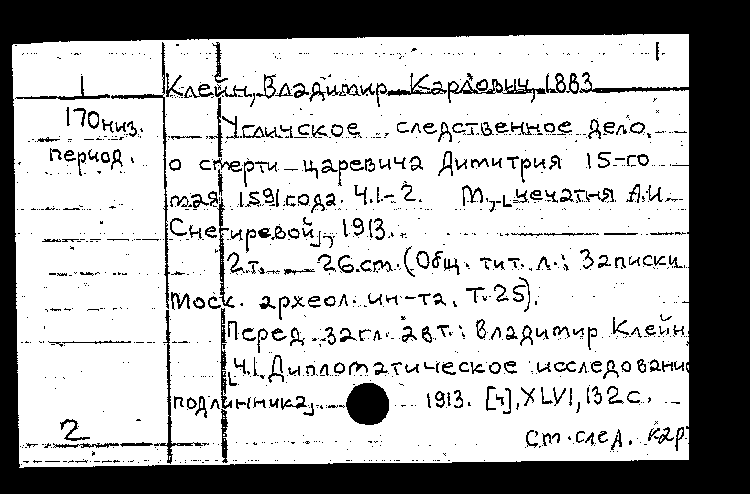 1
1 Клейн, Владимир Карлович, 1883
170 низ. Угличское следственное дело
период. о смерти царевича Димитрия 15-го
мая 1591 года. Ч.1-2. М., печатня А.И.
Снегиревой, 1913.
2т. 26.см. (Общ. тит. л.: Записки
Моск. археол. ин-та. Т.25).
Перед загл. авт.: Владимир Клейн
[Ч.1. Дипломатическое исследовани
подлинника]. 1913. [4], XLVI, 132 с.
2 См. след. кар